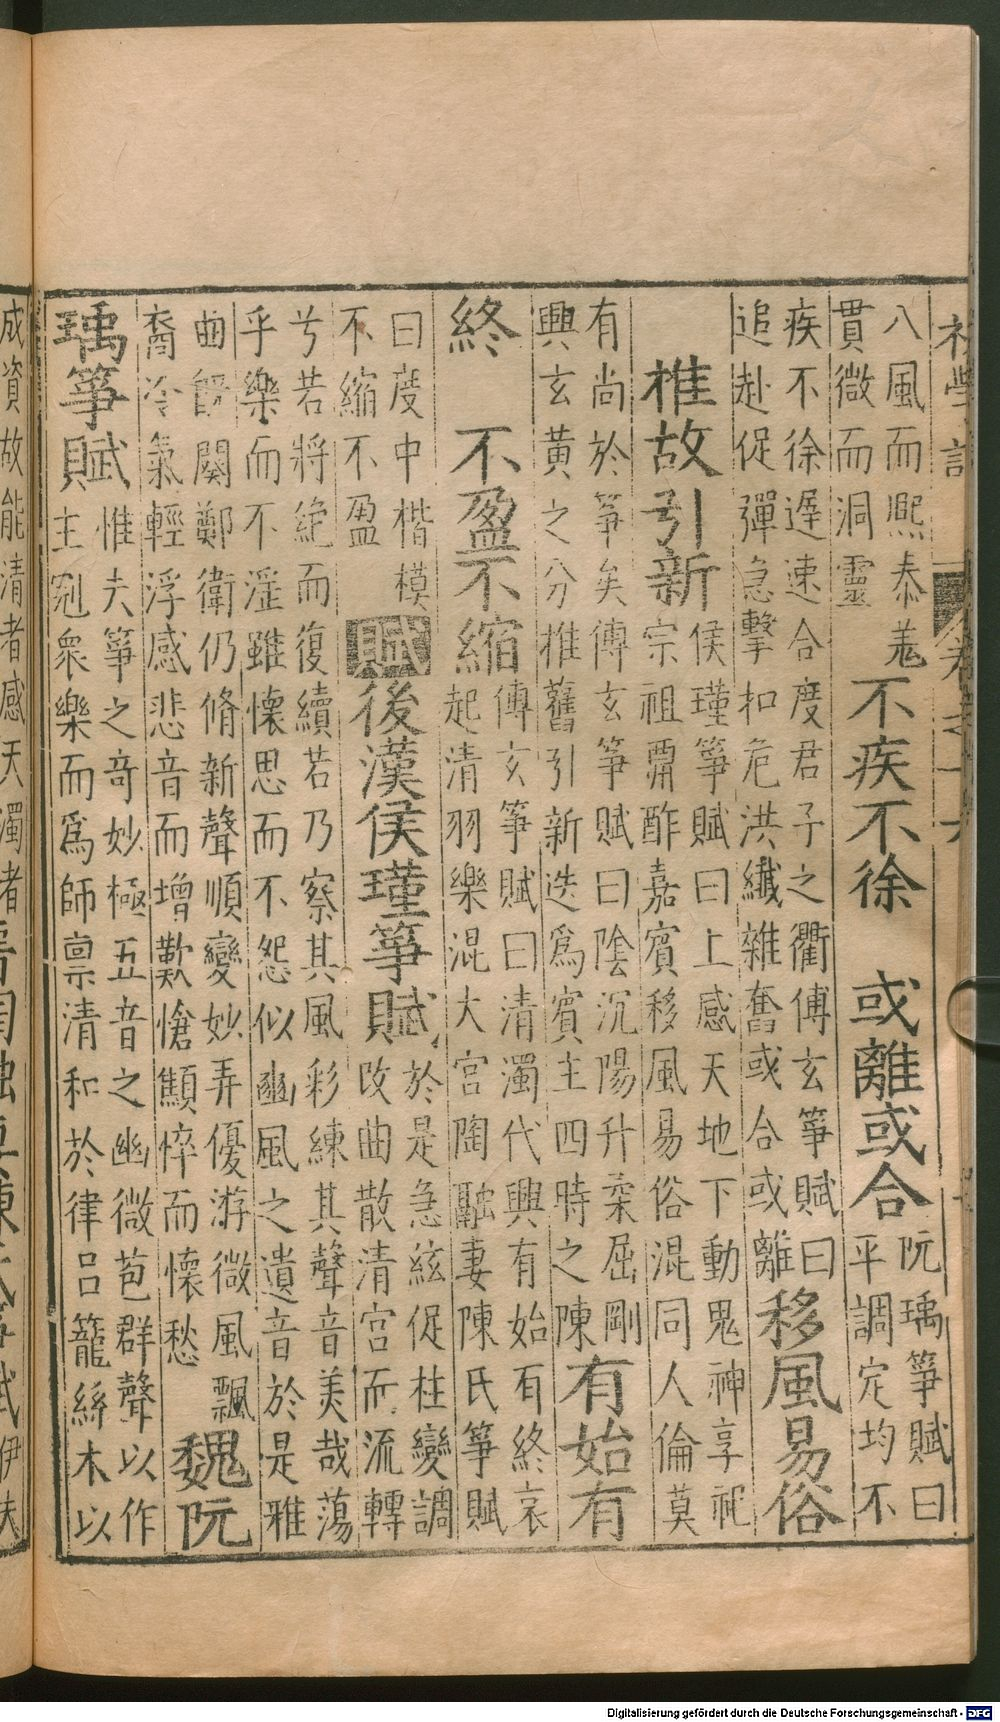 初學記 卷之十六
八風而熙恭羗
貫微而洞靈
不疾不徐　或離或合
阮瑀箏賦曰
平調定均不
疾不徐遲速合度君子之衢傅玄箏賦曰
追赴促彈急擊扣危洪纎雜奮或合或離
移風易俗
椎故引新
侯瑾箏賦曰上感天地下動鬼神享祀
宗祖肅酢嘉賓移風易俗混同人倫莫
有尚於箏矣傅玄箏賦曰陰沉陽升柔屈剛
興玄黄之分推舊引新迭爲賓主四時之陳
有始有
終　不盈不縮
傅玄箏賦曰清濁代興有始有終哀
起清羽樂混大宮陶融妻陳氏箏賦
曰度中楷模
不縮不盈
賦
後漢侯瑾箏賦
於是急絃促柱變調
改曲散清宮而流轉
兮若將絶而復續若乃察其風彩練其聲音美哉蕩
乎樂而不淫雖懷思而不怨似豳風之遺音於是雅
曲旣闋鄭衛仍脩新聲順變妙弄優游微風飄
裔冷氣輕浮感悲音而增歎愴顦悴而懷愁
魏阮
瑀箏賦
惟夫箏之奇妙極五音之幽微苞群聲以作
主剋衆樂而爲師禀清和於律呂籠絲木以
成資故能清者感天濁者
伊夫
Digitalisierung gefördert durch die Deutsche Forschungsgemeinschaft - DFG